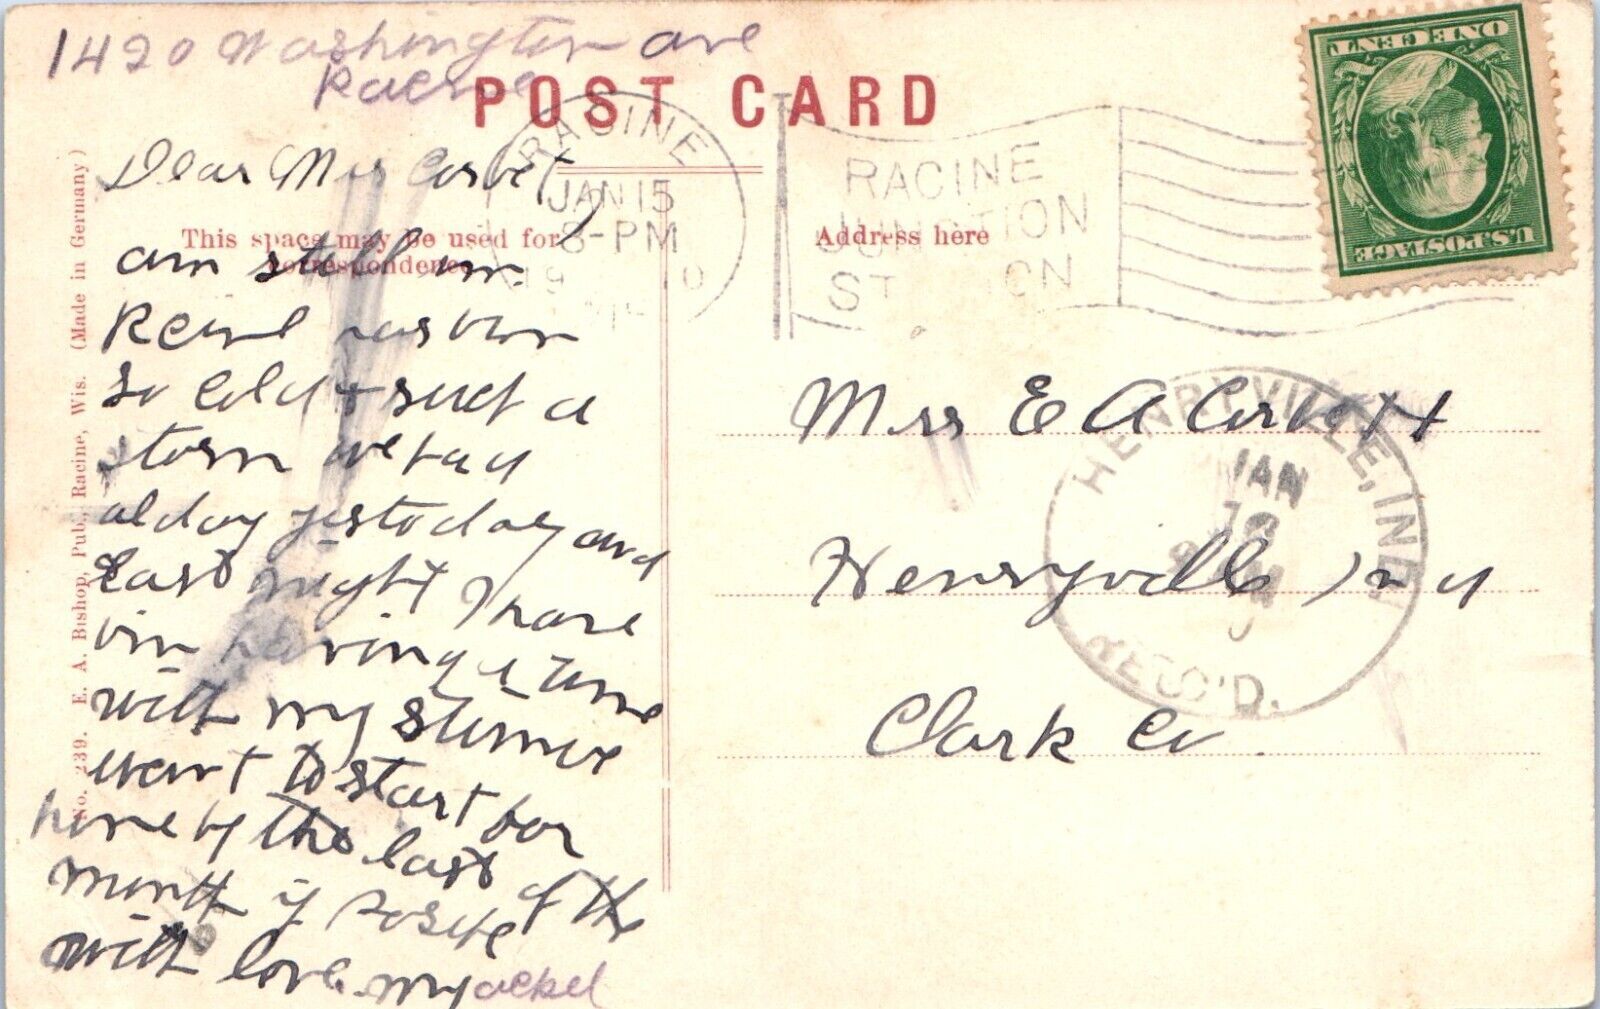 1420 Washington ave
Racine
POST CARD
RACINE
JAN 15
8-PM
19 10
RACINE
JUNCTION
STATION
ONE CENT
U.S.POSTAGE
This space may be used for
correspondence
Address here
No. 239. E. A. Bishop, Pub., Racine, Wis. (Made in Germany)
Dear Mrs Corbet
am still in
has bin
so cold & such a
storm we had
alday yestoday and
Last night I have
bin having a time
with my
want to start for
home by the last of the
month if
with love. my
Mrs E A Corbett
Henryville Ind
Clark Co.
HENRYVILLE, IND.
JAN
REC'D.